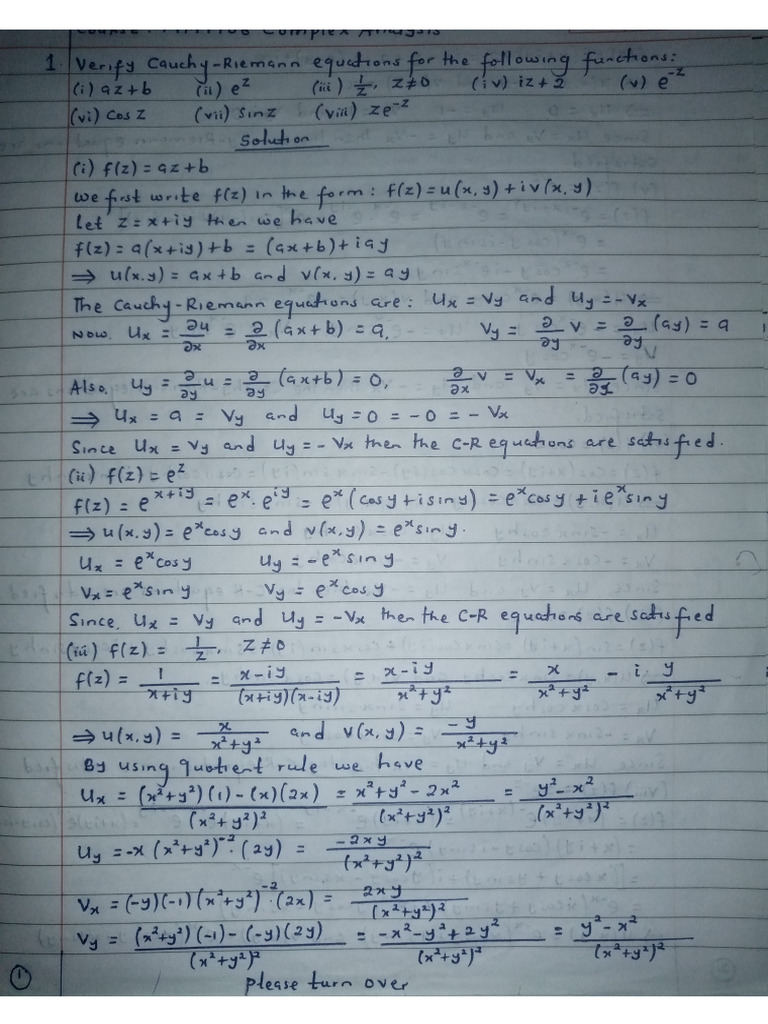 Complex Analysis
1. Verify Cauchy-Riemann equations for the following functions:
(i) az+b (ii) e^z (iii) 1/z, z≠0 (iv) iz+2 (v) e^-z
(vi) Cos z (vii) Sin z (viii) ze^-z
Solution
(i) f(z) = az+b
We first write f(z) in the form: f(z) = u(x,y) + iv(x,y)
Let z = x+iy then we have
f(z) = a(x+iy)+b = (ax+b)+iay
⇒ u(x,y) = ax+b and v(x,y) = ay
The Cauchy-Riemann equations are: Ux = Vy and Uy = -Vx
Now, Ux = ∂u/∂x = ∂/∂x (ax+b) = a, Vy = ∂/∂y v = ∂/∂y (ay) = a
Also, Uy = ∂/∂y u = ∂/∂y (ax+b) = 0, ∂/∂x v = Vx = ∂/∂x (ay) = 0
⇒ Ux = a = Vy and Uy = 0 = -0 = -Vx
Since Ux = Vy and Uy = -Vx then the C-R equations are satisfied.
(ii) f(z) = e^z
f(z) = e^(x+iy) = e^x · e^(iy) = e^x (cos y + i sin y) = e^x cos y + i e^x sin y
⇒ u(x,y) = e^x cos y and v(x,y) = e^x sin y.
Ux = e^x cos y Uy = -e^x sin y
Vx = e^x sin y Vy = e^x cos y
Since, Ux = Vy and Uy = -Vx then the C-R equations are satisfied
(iii) f(z) = 1/z, z≠0
f(z) = 1/(x+iy) = (x-iy)/((x+iy)(x-iy)) = (x-iy)/(x²+y²) = x/(x²+y²) - i y/(x²+y²)
⇒ u(x,y) = x/(x²+y²) and v(x,y) = -y/(x²+y²)
By using quotient rule we have
Ux = ((x²+y²)(1) - (x)(2x))/(x²+y²)² = (x²+y²-2x²)/(x²+y²)² = (y²-x²)/(x²+y²)²
Uy = -x (x²+y²)^-2 · (2y) = -2xy/(x²+y²)²
Vx = (-y)(-1)(x²+y²)^-2 · (2x) = 2xy/(x²+y²)²
Vy = ((x²+y²)(-1) - (-y)(2y))/(x²+y²)² = (-x²-y²+2y²)/(x²+y²)² = (y²-x²)/(x²+y²)²
1 please turn over